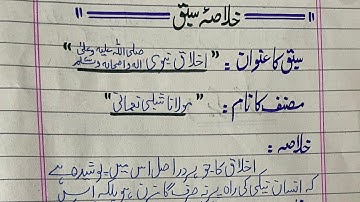 خلاصۂ سبق
سبق کا عنوان : " اخلاق نبوی صلی اللہ علیہ وعلیٰ آلہ واصحابہ وسلم "
مصنف کا نام : " مولانا شبلی نعمانی "
خلاصہ :
اخلاق کا جو ہر دراصل اس میں پوشیدہ ہے
کہ انسان نیکی کی راہ پر نہ صرف گامزن ہو بلکہ اس